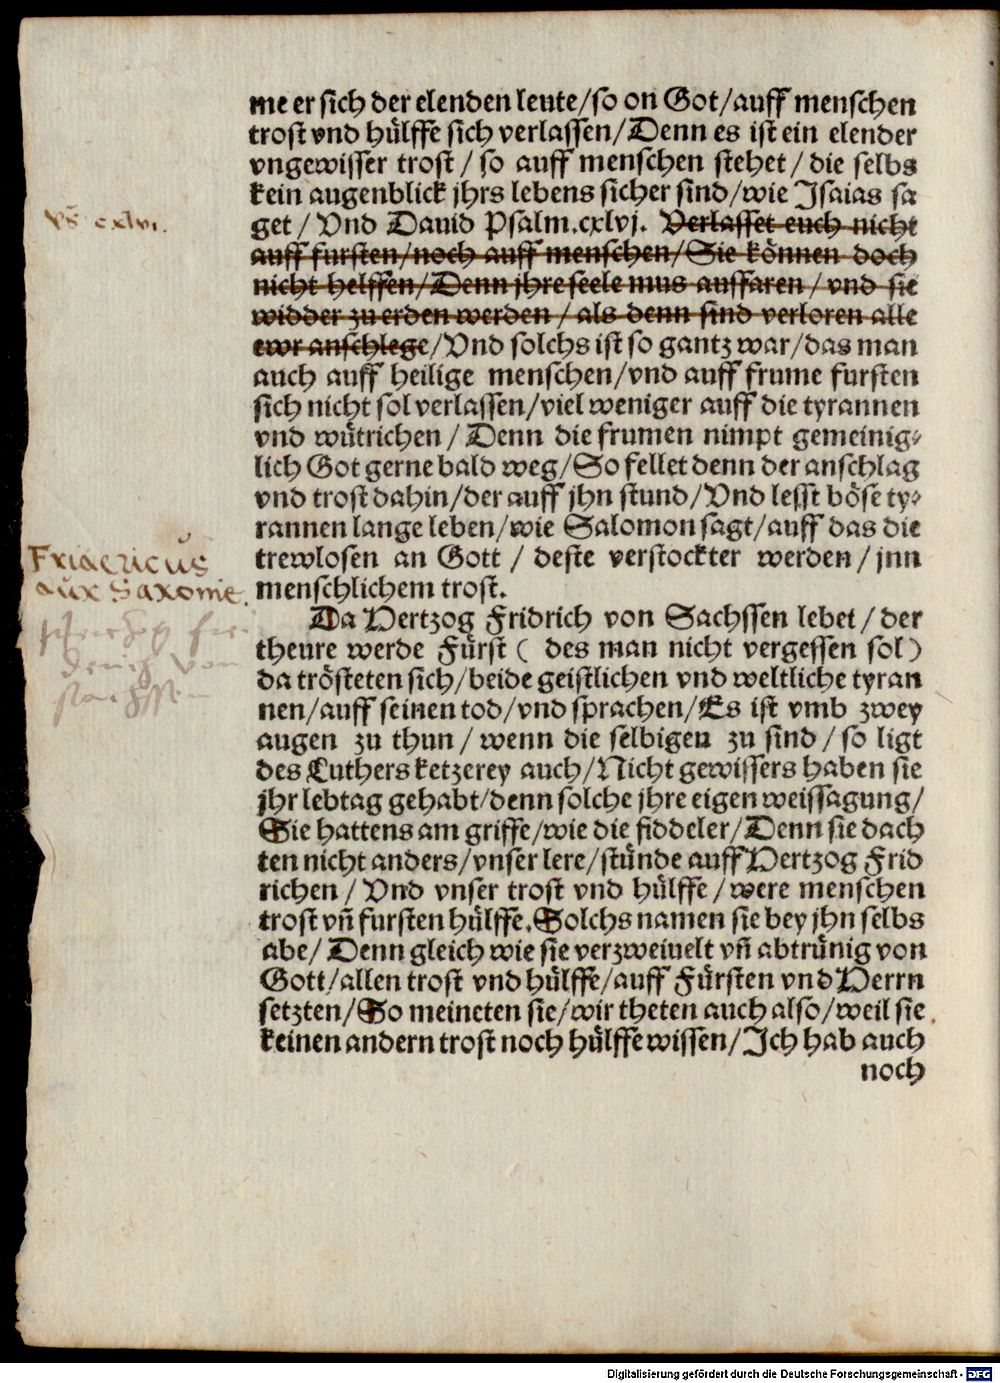 me er sich der elenden leute/so on Got/auff menschen
trost vnd hülffe sich verlassen/Denn es ist ein elender
vngewisser trost/so auff menschen stehet/die selbs
kein augenblick jhrs lebens sicher sind/wie Isaias sa
get/Vnd Dauid Psalm.cxlvj. Verlasset euch nicht
auff fursten/noch auff menschen/Sie können doch
nicht helffen/Denn jhre seele mus auffaren/vnd sie
widder zu erden werden/als denn sind verloren alle
ewr anschlege/Vnd solchs ist so gantz war/das man
auch auff heilige menschen/vnd auff frume fursten
sich nicht sol verlassen/viel weniger auff die tyrannen
vnd wütrichen/Denn die frumen nimpt gemeinig⸗
lich Got gerne bald weg/So fellet denn der anschlag
vnd trost dahin/der auff jhn stund/Vnd lesst böse ty⸗
rannen lange leben/wie Salomon sagt/auff das die
trewlosen an Gott/deste verstockter werden/jnn
menschlichem trost.
Da Hertzog Fridrich von Sachssen lebet/der
theure werde Fürst (des man nicht vergessen sol)
da trösteten sich/beide geistlichen vnd weltliche tyran
nen/auff seinen tod/vnd sprachen/Es ist vmb zwey
augen zu thun/wenn die selbigen zu sind/so ligt
des Luthers ketzerey auch/Nicht gewissers haben sie
jhr lebtag gehabt/denn solche jhre eigen weissagung/
Sie hattens am griffe/wie die fiddeler/Denn sie dach
ten nicht anders/vnser lere/stünde auff Hertzog Frid
richen/Vnd vnser trost vnd hülffe/were menschen
trost vñ fursten hülffe.Solchs namen sie bey jhn selbs
abe/Denn gleich wie sie verzweiuelt vñ abtrünig von
Gott/allen trost vnd hülffe/auff Fürsten vnd Herrn
setzten/So meineten sie/wir theten auch also/weil sie
keinen andern trost noch hülffe wissen/Ich hab auch
noch
cxlvi.
Fridericus
dux Saxonie.
Digitalisierung gefördert durch die Deutsche Forschungsgemeinschaft - DFG